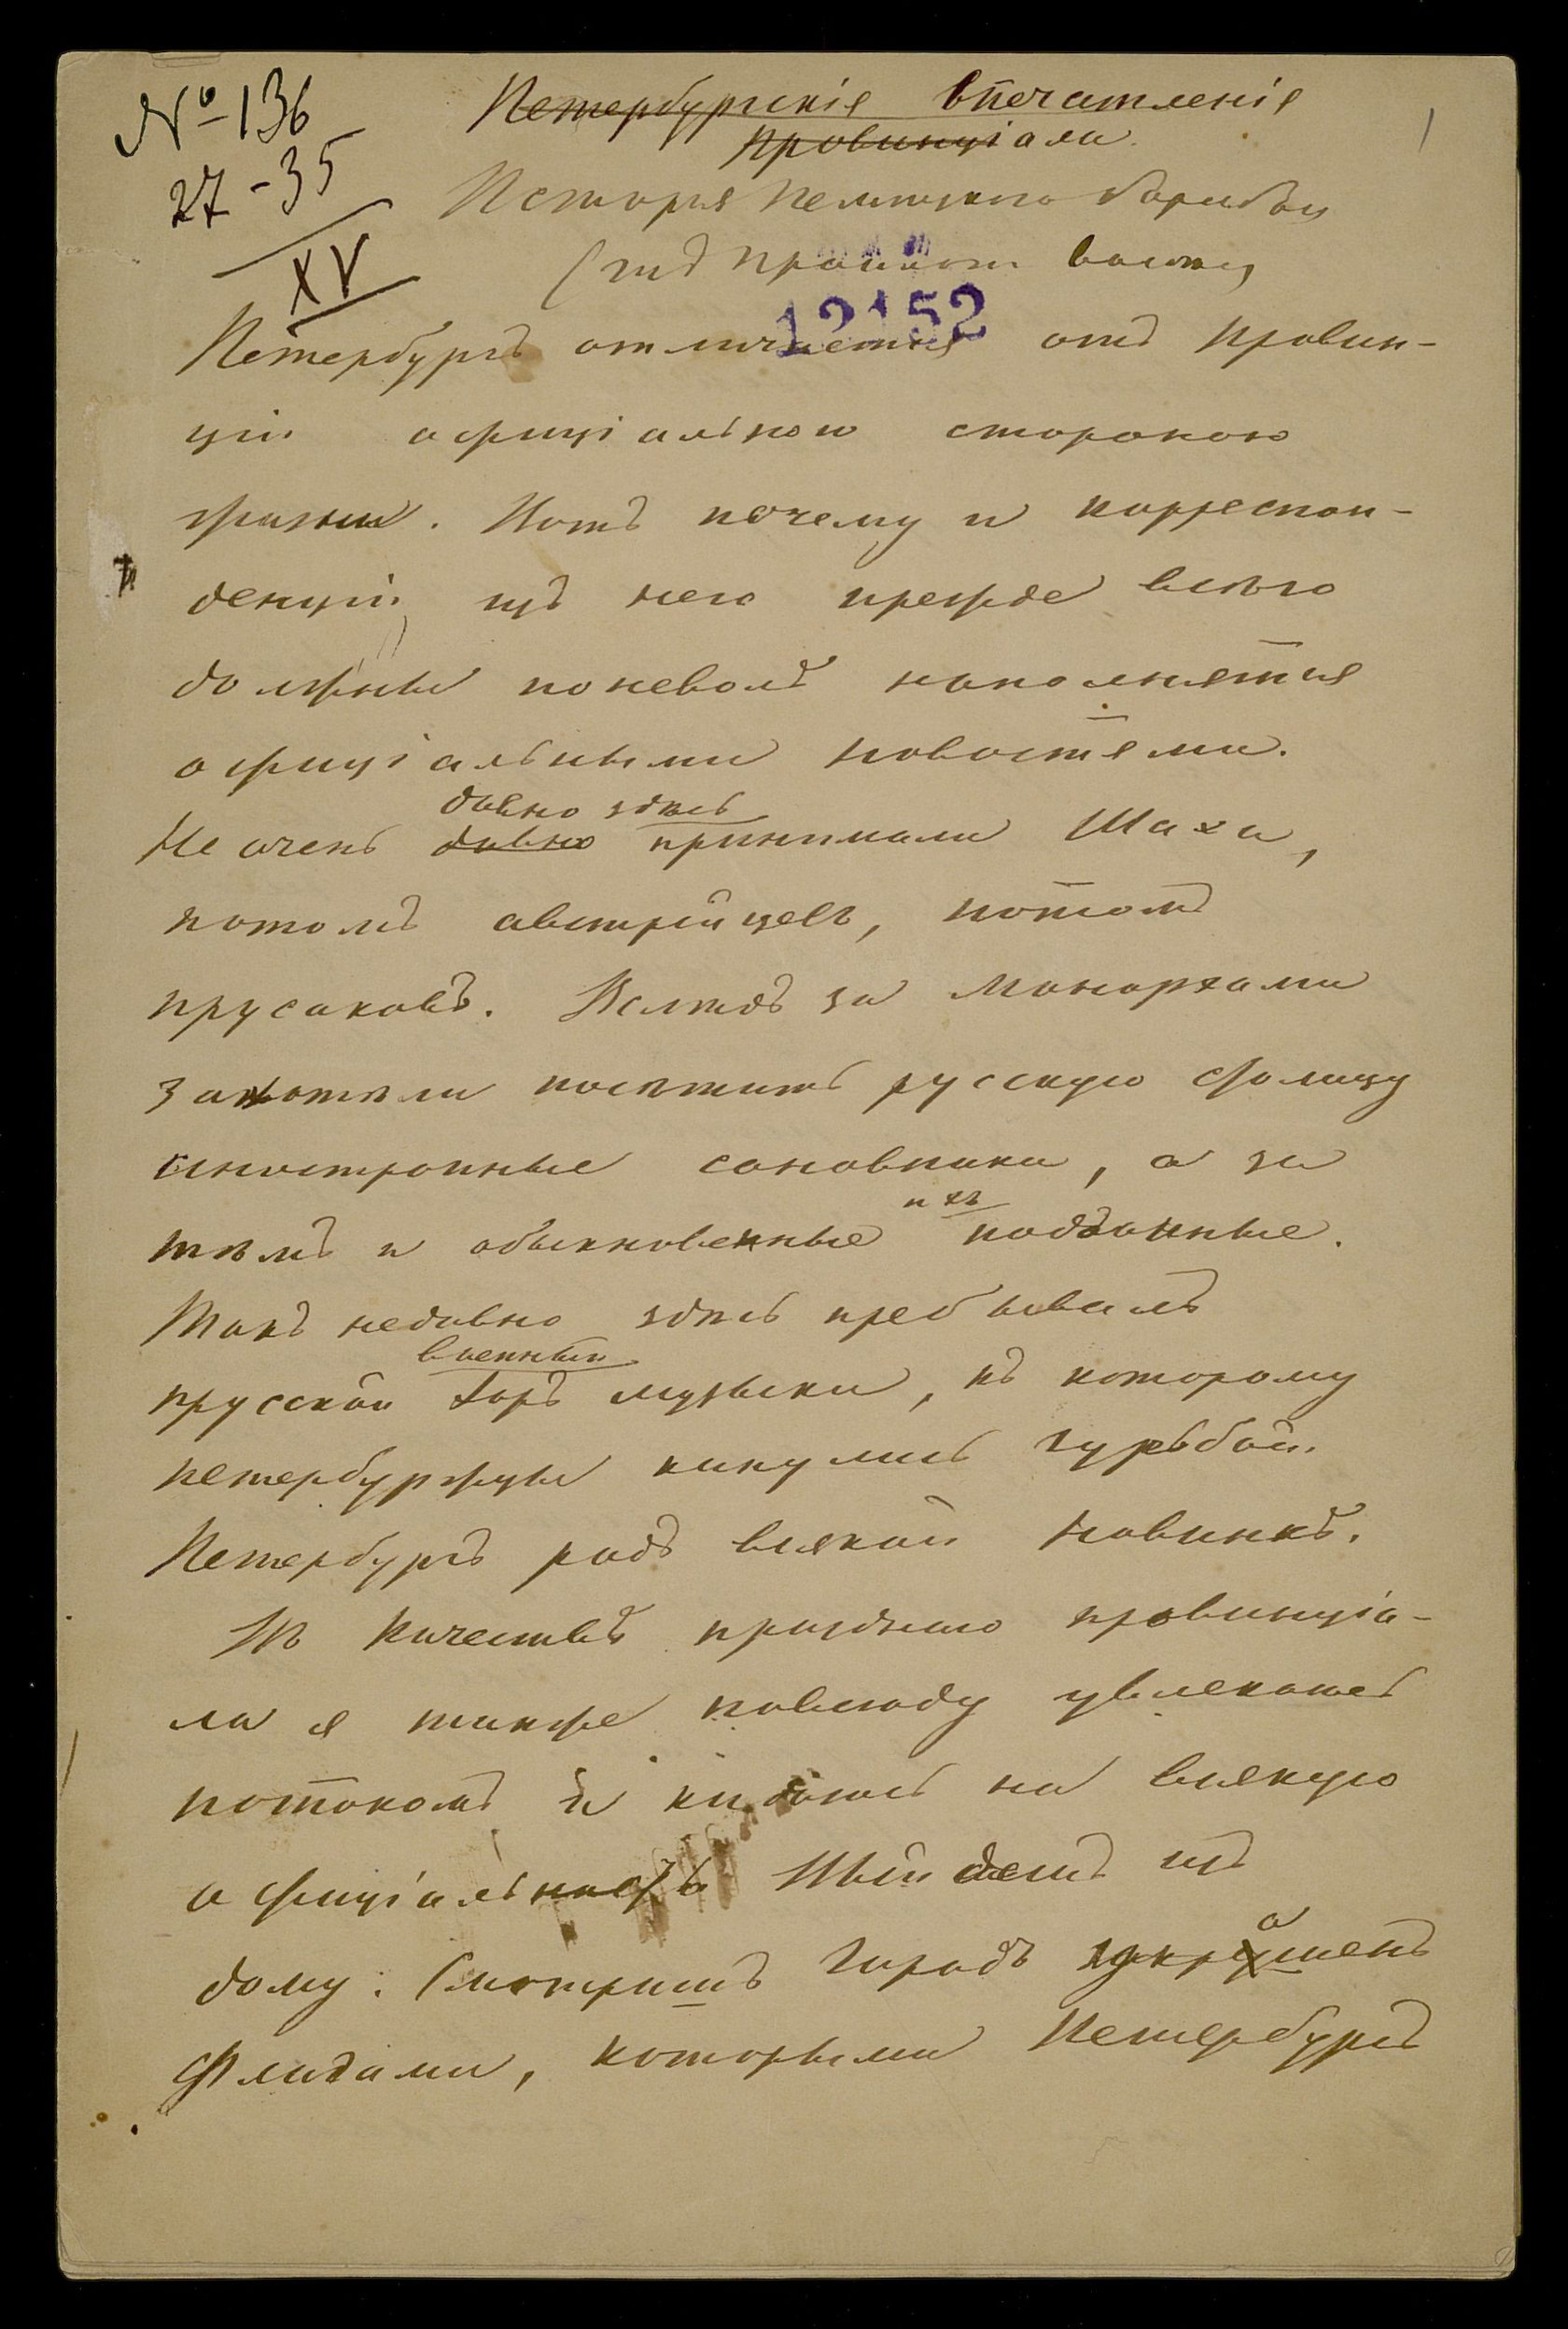 № 136
27-35
XV
1
Петербургскія впечатленія
провинціала.
Исторія
12152
Петербургъ отличается отъ провин-
ціи офиціальною стороною
жизни. Вотъ почему и корреспон-
денціи изъ него прежде всего
должны поневолѣ наполнятся
офиціальными новостями.
давно здѣсь
Не очень давно принимали Шаха,
потомъ австрійцевъ, потомъ
прусаковъ. Вслѣдъ за монархами
захотѣли посѣтить русскую столицу
иностранные сановники, а за
ихъ
тѣмъ и обыкновенные подданные.
Такъ недавно здѣсь пребывалъ
военный
прусскій хоръ музыки, къ которому
петербуржцы кинулись гурьбой.
Петербургъ радъ всякой новинкѣ.
Въ качествѣ пріѣзжаго провинціа-
ла я также повсюду увлекаюсь
потокомъ и кидаюсь на всякую
офиціальность Выйдешь изъ
дому. Смотришь городъ украшенъ
флагами, которыми Петербургъ